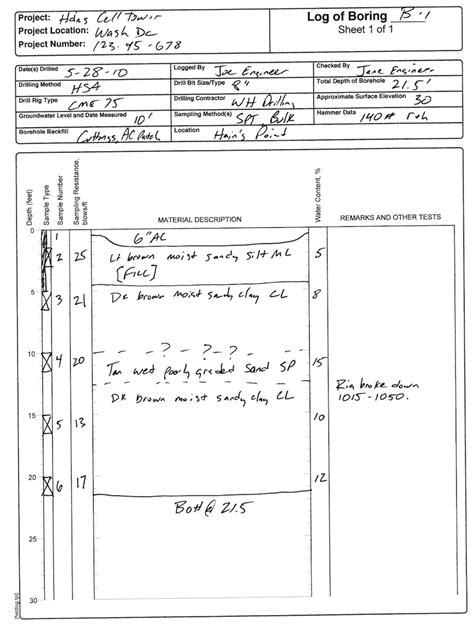 Project: Hdqs Cell Tower
Project Location: Wash DC
Project Number: 123-45-678
Log of Boring B-1
Sheet 1 of 1
Date(s) Drilled 5-28-10
Logged By Joe Engineer
Checked By Jane Engineer
Drilling Method HSA
Drill Bit Size/Type 8"
Total Depth of Borehole 21.5'
Drill Rig Type CME 75
Drilling Contractor WH Drilling
Approximate Surface Elevation 30
Groundwater Level and Date Measured 10'
Sampling Method(s) SPT Bulk
Hammer Data 140# r+h
Borehole Backfill Cuttings, AC Patch
Location Hain's Point
Depth (feet)
Sample Type
Sample Number
Sampling Resistance, blows/ft
MATERIAL DESCRIPTION
Water Content, %
REMARKS AND OTHER TESTS
0
1
6" AC
2 25 Lt brown moist sandy silt ML 5
[FILL]
5
3 21 Dk brown moist sandy clay CL 8
? ? ?
10
4 20 Tan wet poorly graded sand SP 15
Rig broke down
1015-1050.
Dk brown moist sandy clay CL
15
5 13 10
20
6 17 12
Bott @ 21.5
25
30
[fieldlog.tpl]